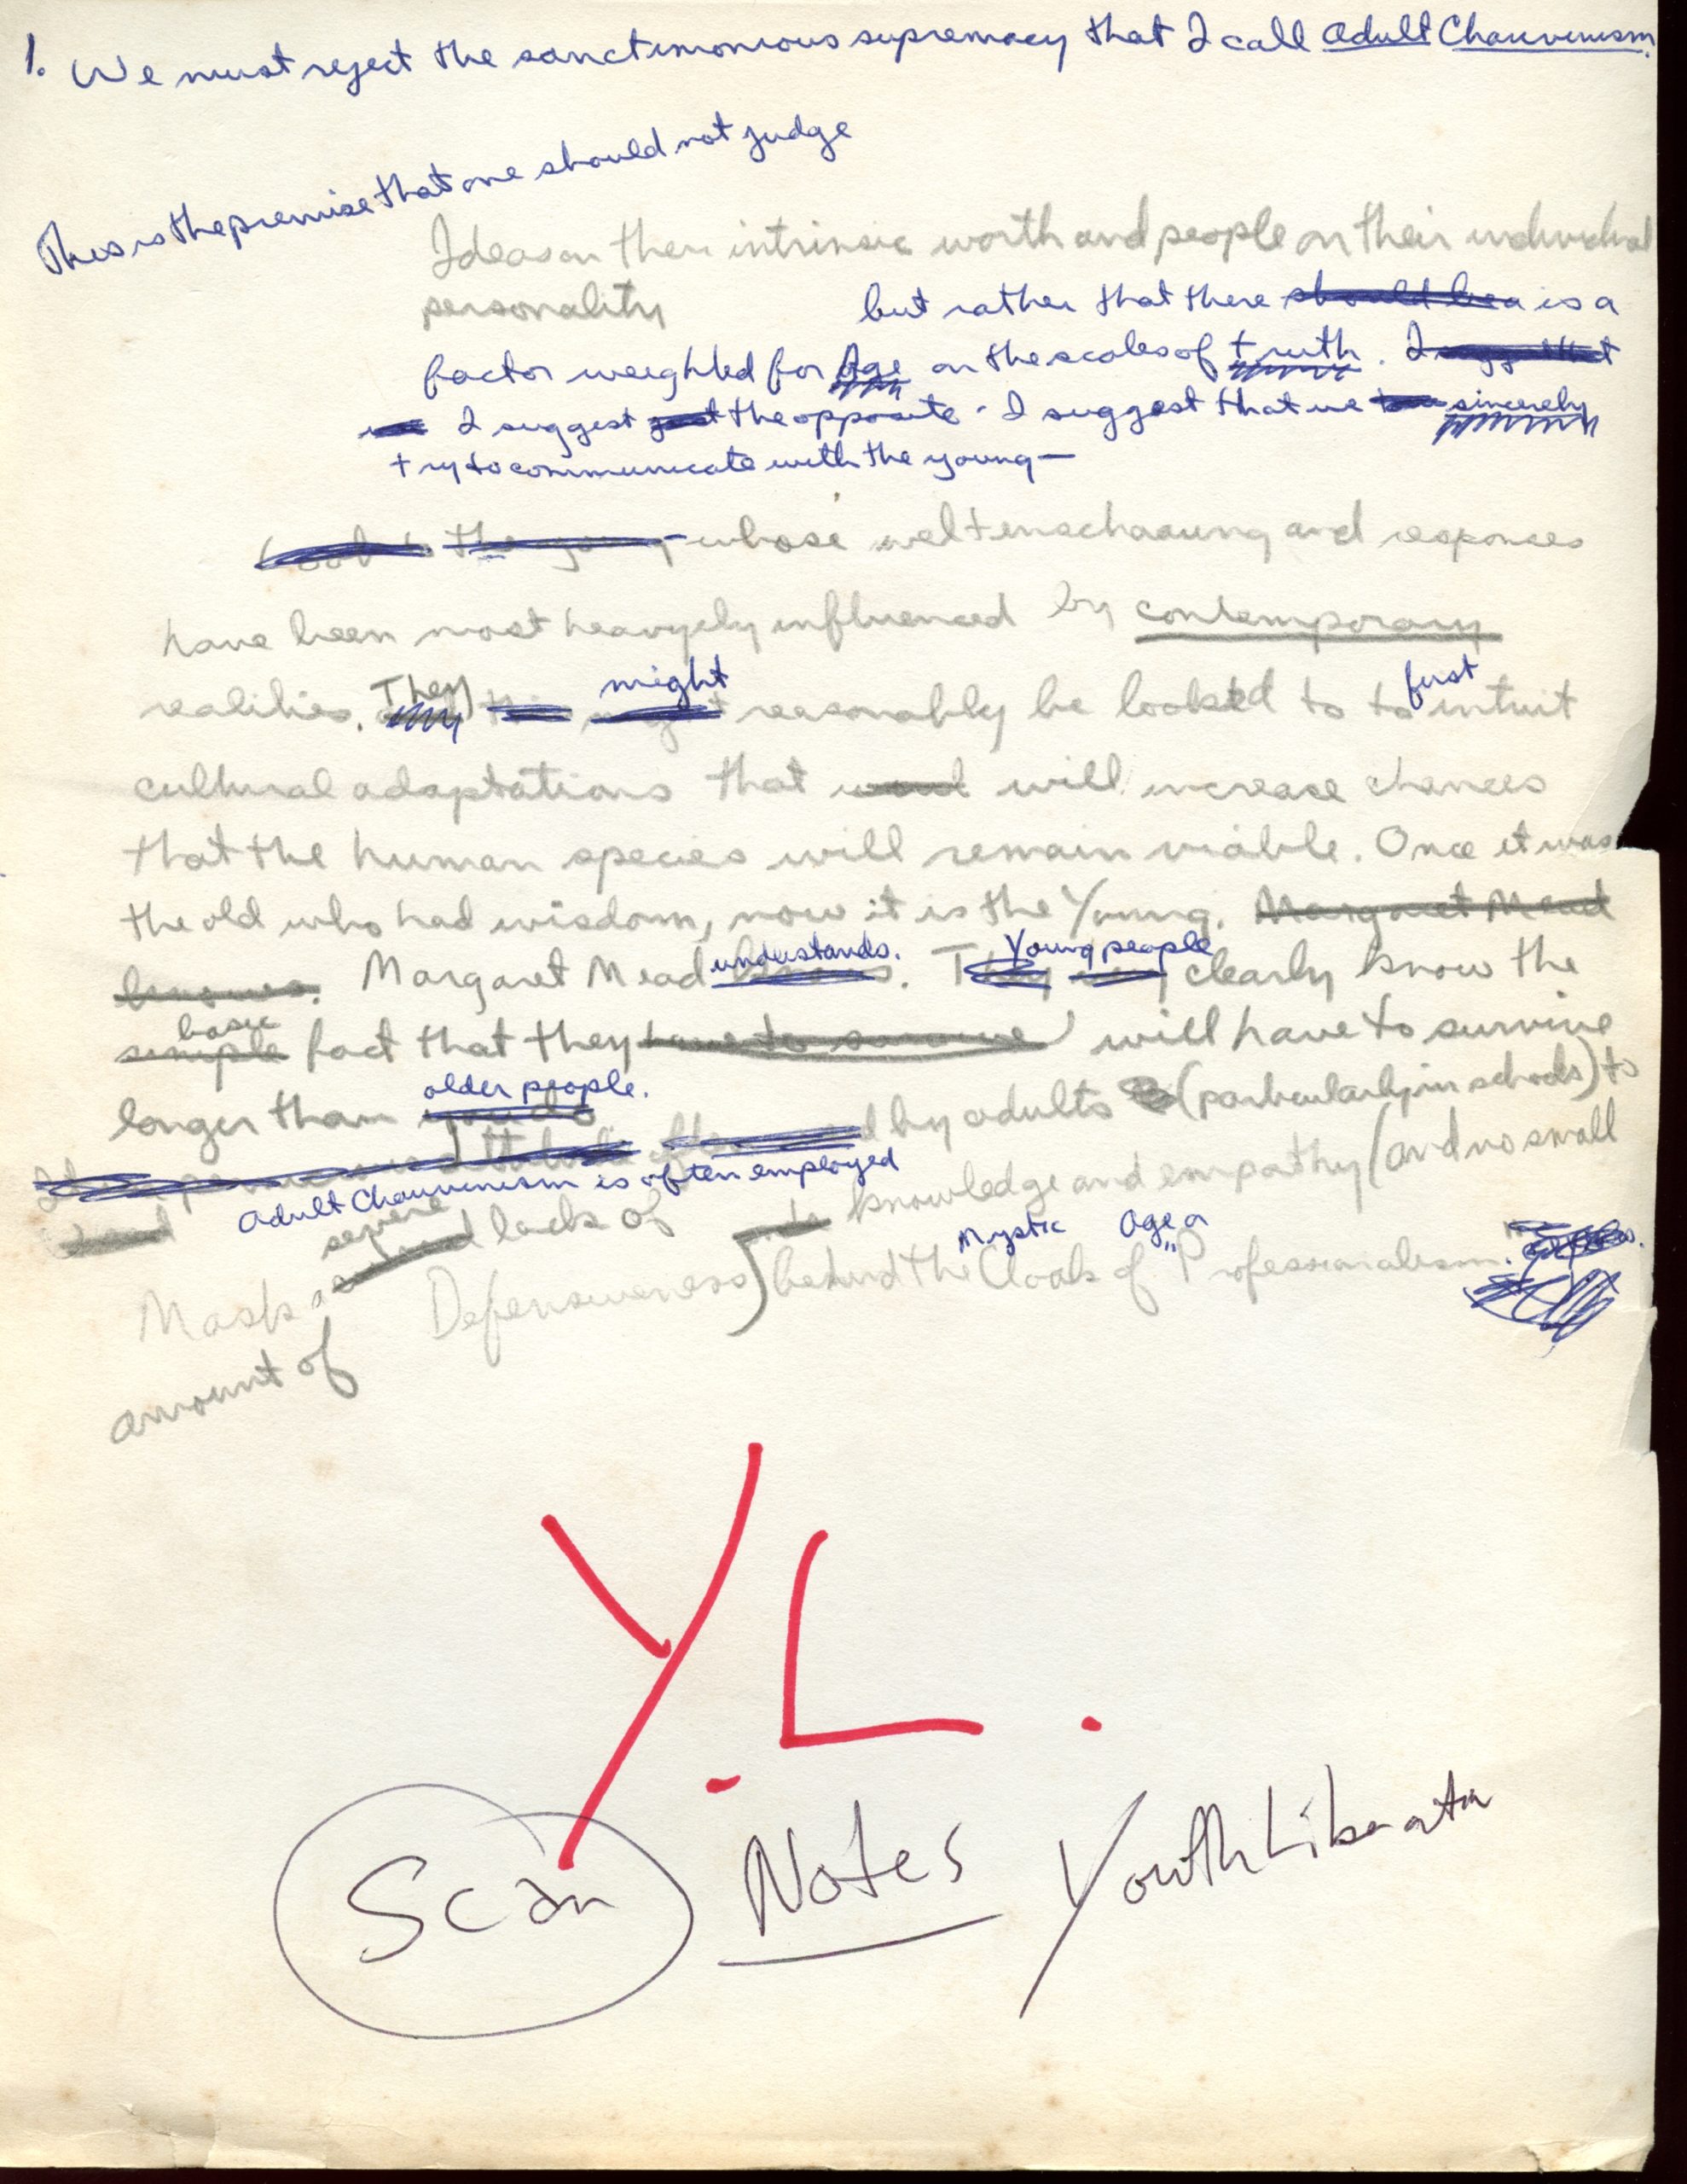 1. We must reject the sanctimonious supremacy that I call Adult Chauvenism.
This is the premise that one should not judge
Ideas on their intrinsic worth and people on their individual
personality but rather that there should be a is a
factor weighted for Age on the scales of truth. I suggest that
I suggest just the opposite - I suggest that we sincerely
try to communicate with the young—
the young whose weltenschaaung and responces
have been most heavyely influenced by contemporary
realities. They might reasonably be looked to to first intuit
cultural adaptations that will increase chances
that the human species will remain viable. Once it was
the old who had wisdom, now it is the Young. Margaret Mead
knows. Margaret Mead understands. Young people clearly know the
simple basic fact that they have to survive will have to survive
longer than older people.
by adults (particularly in schools) to
Adult Chauvenism is often employed
Mask a severe lack of knowledge and empathy (and no small
amount of Defensiveness) behind the Mystic Cloak of Age or "Professionalism."
Y.L.
Scan Notes Youth Liberatn